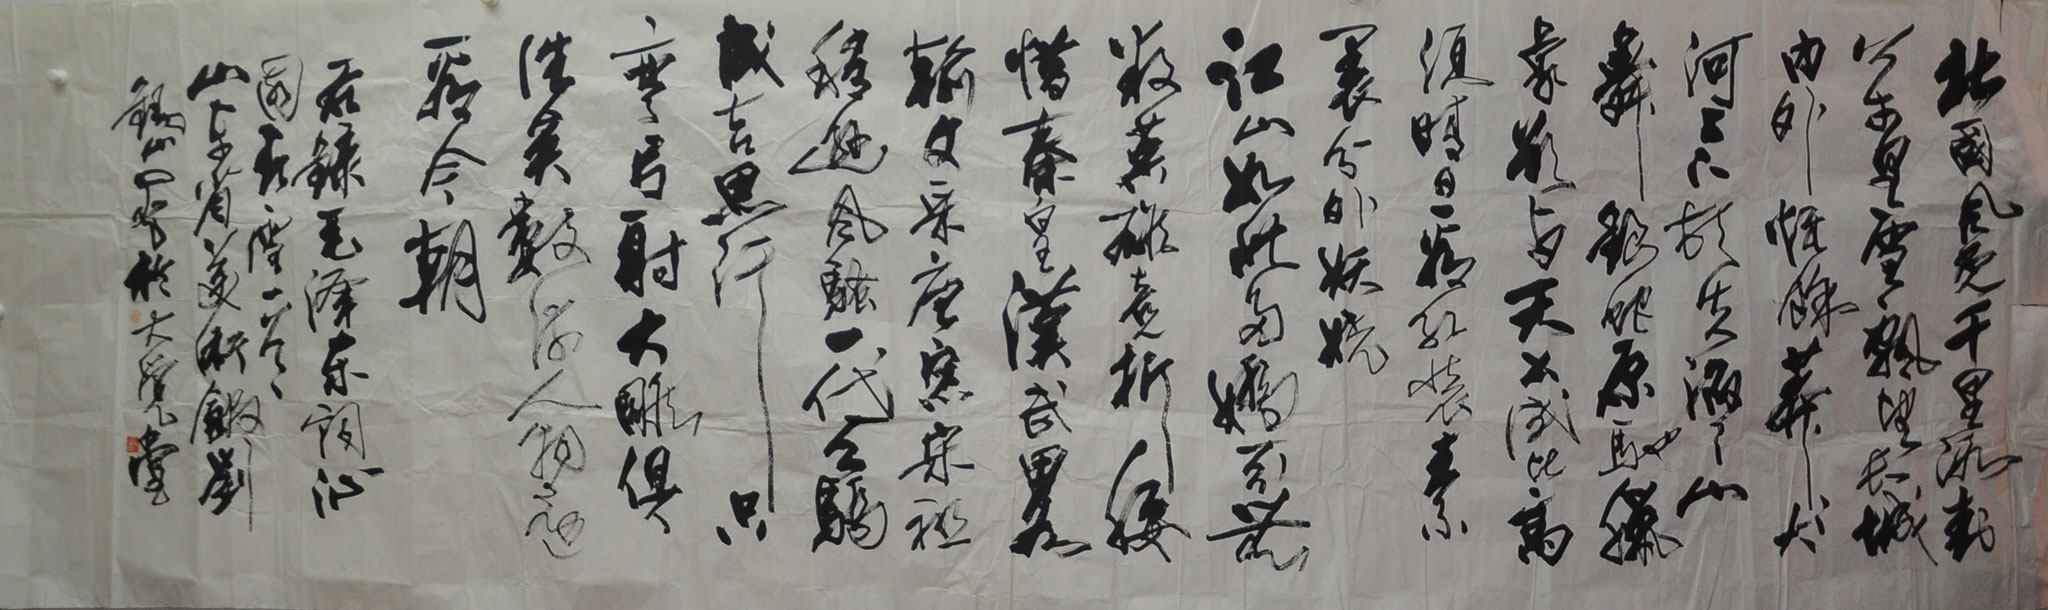 北國風光千里冰封
萬里雪飄望長城
内外惟餘莽莽大
河上下頓失滔滔山
舞銀蛇原馳蠟
象欲與天公試比高
須晴日看紅裝素
裹分外妖嬈
江山如此多嬌引無
數英雄競折腰
惜秦皇漢武略
輸文采唐宗宋祖
稍遜風騷一代天驕
成吉思汗只
彎弓射大雕俱
往矣數風流人物還
看今朝
右錄毛澤東詞沁
園春雪
山東省美術館
於大覺堂